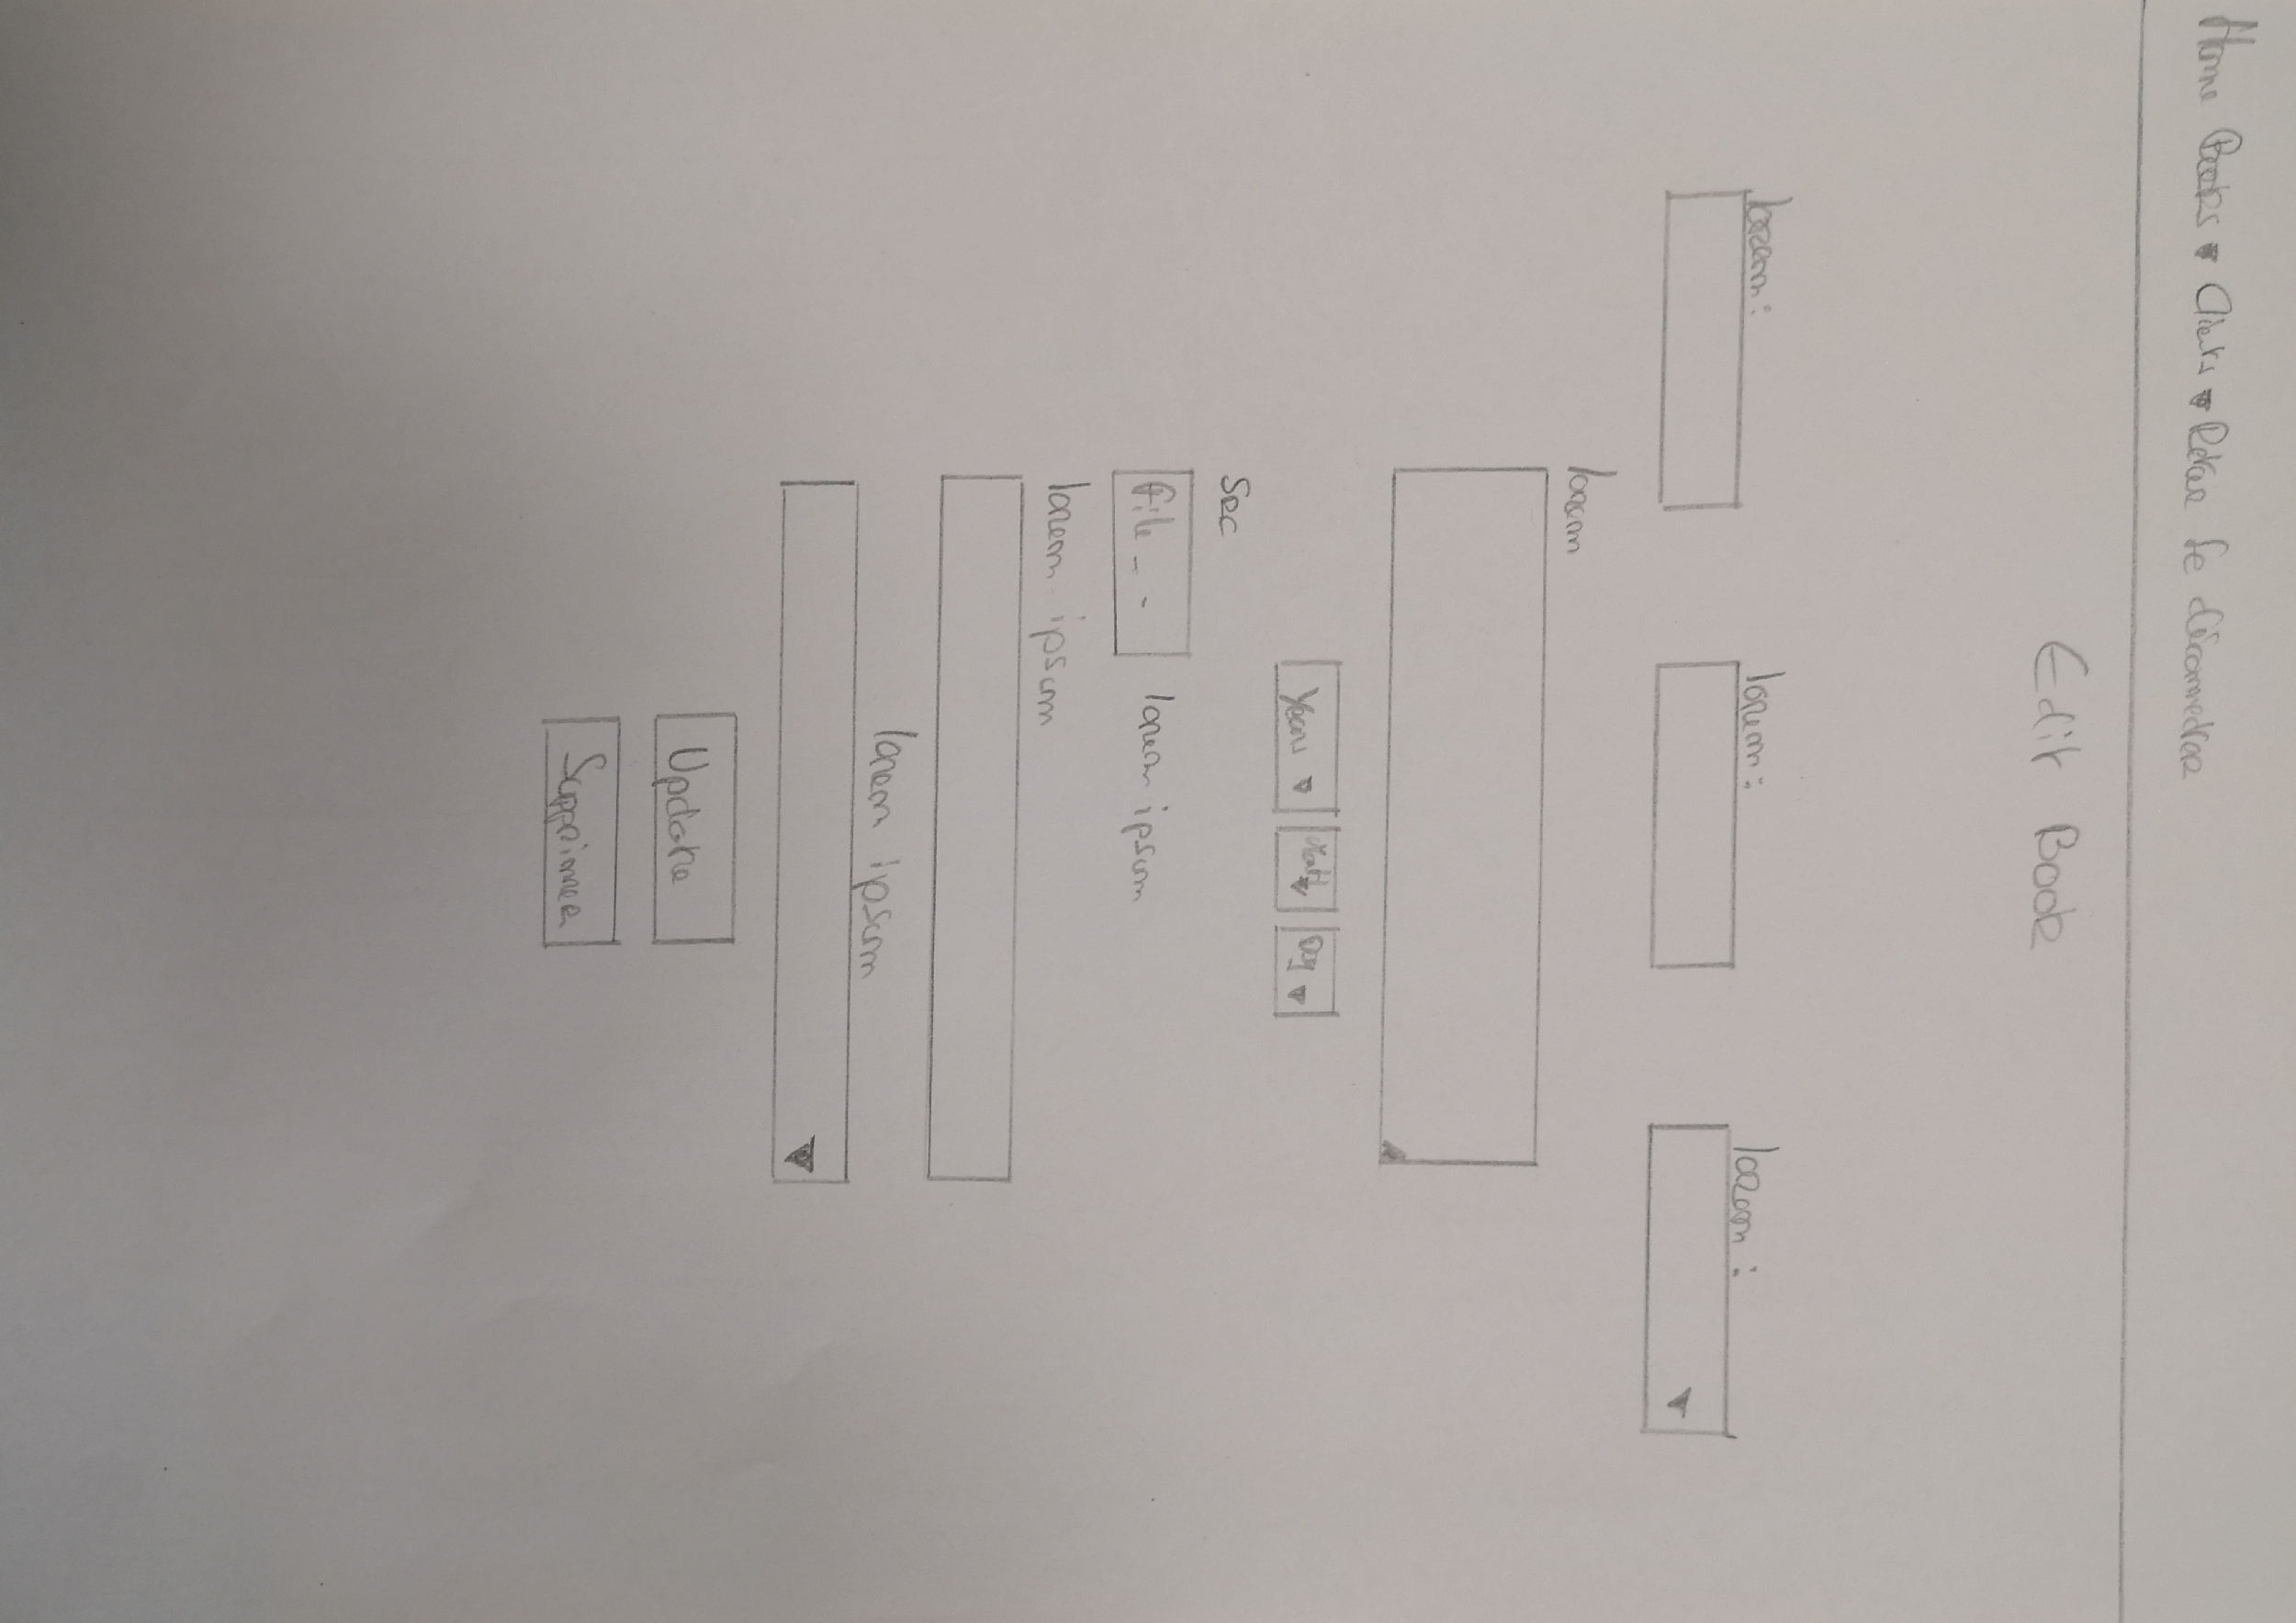 Home Books Clients Retour Se déconnecter
Edit Book
lorem: lorem: lorem:
lorem
Year Month Day
SRC
File - - lorem ipsum
lorem ipsum
lorem ipsum
Update
Supprimer